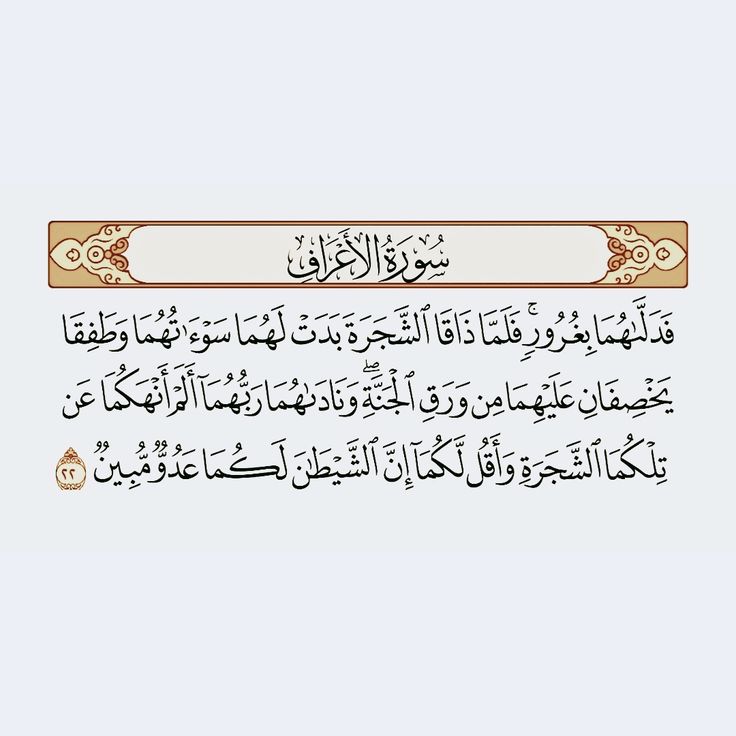 سُورَةُ الأَعْرَافِ
فَدَلَّىٰهُمَا بِغُرُورٍۚ فَلَمَّا ذَاقَا ٱلشَّجَرَةَ بَدَتْ لَهُمَا سَوْءَٰتُهُمَا وَطَفِقَا
يَخْصِفَانِ عَلَيْهِمَا مِن وَرَقِ ٱلْجَنَّةِۖ وَنَادَىٰهُمَا رَبُّهُمَآ أَلَمْ أَنْهَكُمَا عَن
تِلْكُمَا ٱلشَّجَرَةِ وَأَقُل لَّكُمَآ إِنَّ ٱلشَّيْطَٰنَ لَكُمَا عَدُوٌّ مُّبِينٌ ٢٢